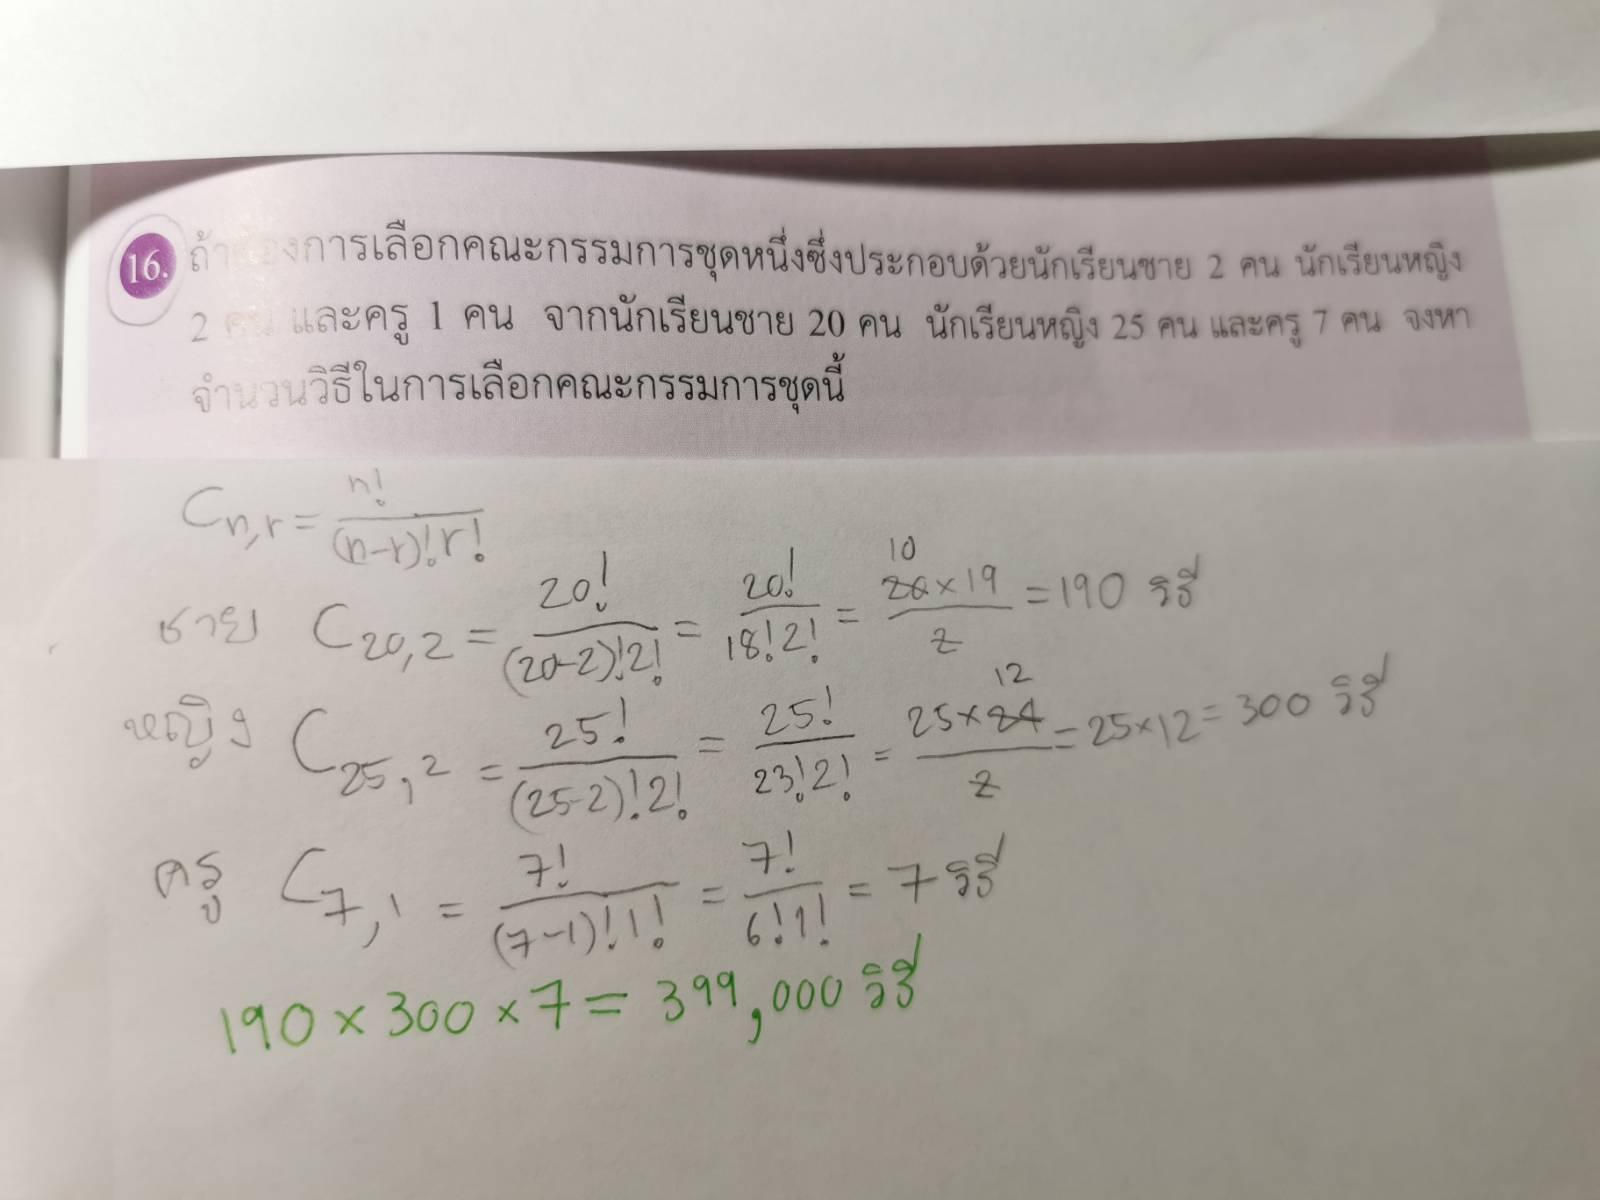 16. ถ้าต้องการเลือกคณะกรรมการชุดหนึ่งซึ่งประกอบด้วยนักเรียนชาย 2 คน นักเรียนหญิง
2 คน และครู 1 คน จากนักเรียนชาย 20 คน นักเรียนหญิง 25 คน และครู 7 คน จงหา
จำนวนวิธีในการเลือกคณะกรรมการชุดนี้
Cn,r = n! / (n-r)!r!
ชาย C20,2 = 20! / (20-2)!2! = 20! / 18!2! = 10 20×19 / 2 = 190 วิธี
หญิง C25,2 = 25! / (25-2)!2! = 25! / 23!2! = 25×24 12 / 2 = 25×12 = 300 วิธี
ครู C7,1 = 7! / (7-1)!1! = 7! / 6!1! = 7 วิธี
190 × 300 × 7 = 399,000 วิธี